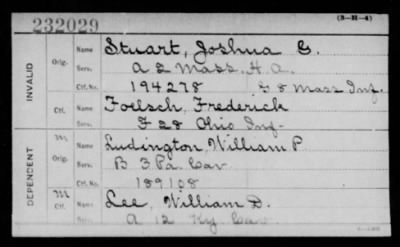 232029
(3-31-4)
INVALID
Orig. Name Stuart, Joshua G.
Serv. A 2 Mass. H.A.
Ctf. No. 194278 G 8 Mass Inf.
Ctf. Name Foelsch, Frederick
Serv. F 28 Ohio Inf.
DEPENDENT
M Orig. Name Ludington, William P
Serv. B 3 Pa. Cav
Ctf. No. 189108
M Ctf. Name Lee, William D.
Serv. A 12 Ky. Cav.